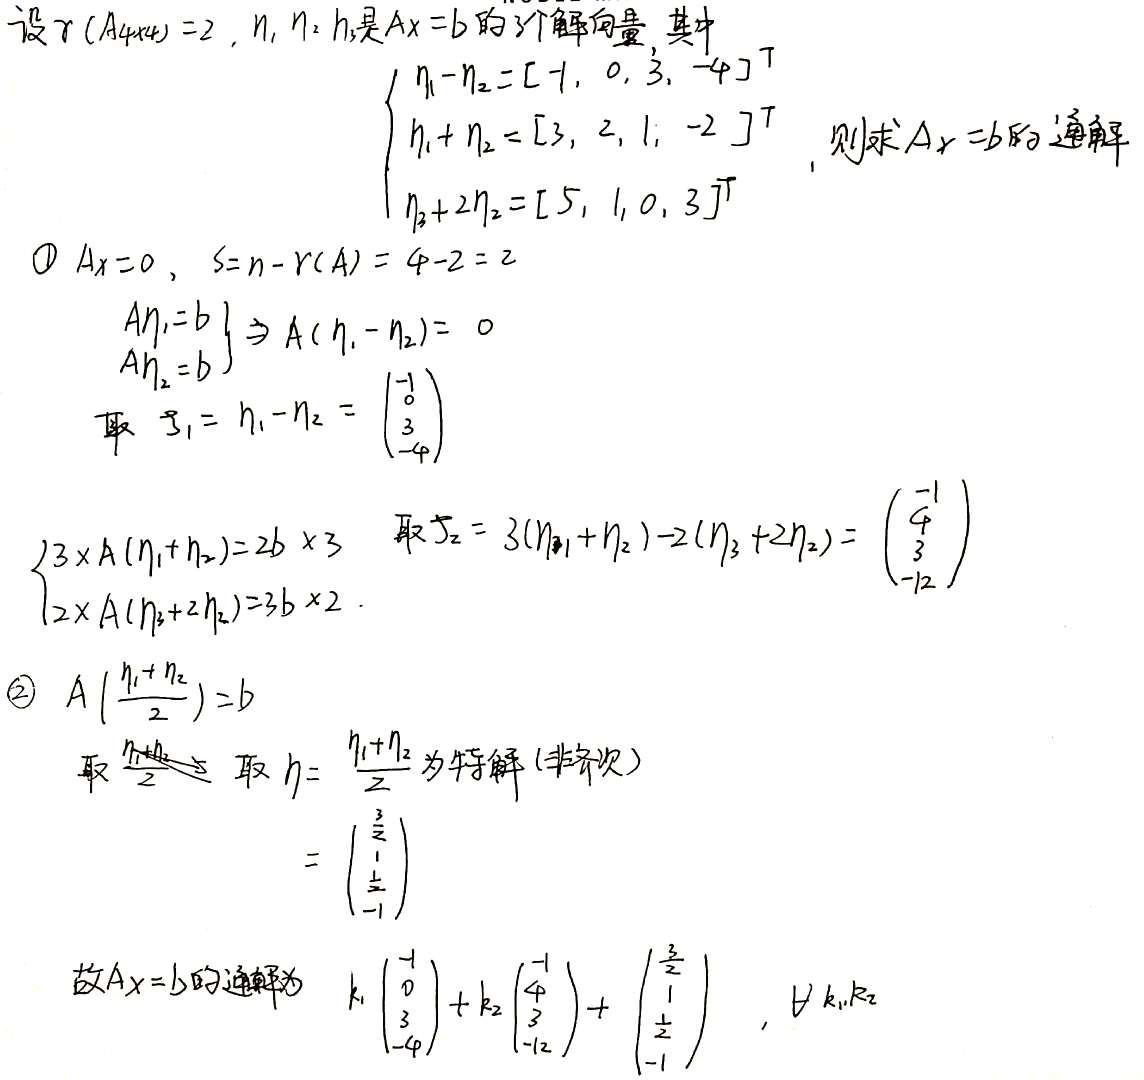 设r(A₄ₓ₄)=2, η₁ η₂ η₃是Ax=b的3个解向量,其中
η₁-η₂=[-1, 0, 3, -4]ᵀ
η₁+η₂=[3, 2, 1, -2]ᵀ
η₃+2η₂=[5, 1, 0, 3]ᵀ
,则求Ax=b的通解
① Ax=0, S=n-r(A)=4-2=2
Aη₁=b
Aη₂=b
} ⇒ A(η₁-η₂)=0
取 ξ₁=η₁-η₂=(-1 0 3 -4)
{3×A(η₁+η₂)=2b×3
2×A(η₃+2η₂)=3b×2.
取ξ₂=3(η₁+η₂)-2(η₃+2η₂)=(-1 4 3 -12)
② A((η₁+η₂)/2)=b
取 取η=(η₁+η₂)/2 为特解(非齐次)
=(3/2 1 1/2 -1)
故Ax=b的通解为 k₁(-1 0 3 -4)+k₂(-1 4 3 -12)+(3/2 1 1/2 -1), ∀k₁,k₂